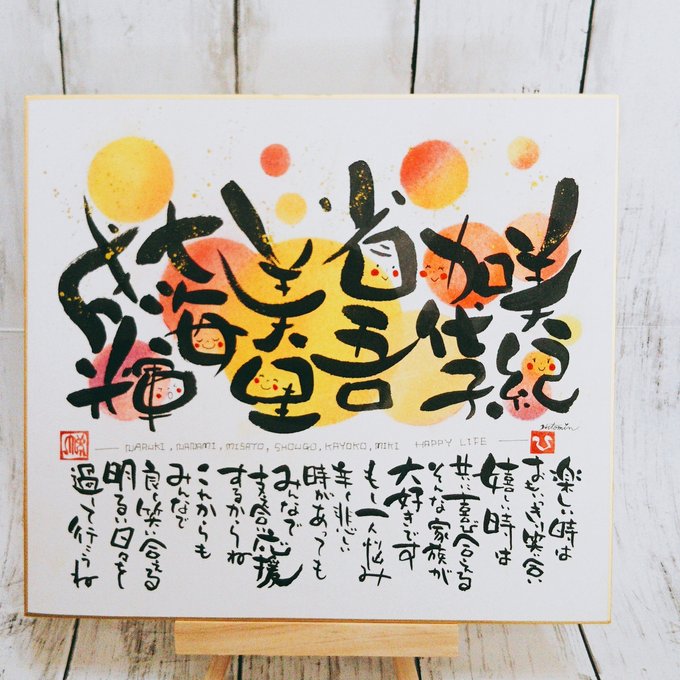 美紀
加代子
省吾
美里
七海
成輝
Hitomin
NARUKI, NANAMI, MISATO, SHOUGO, KAYOKO, MIKI HAPPY LIFE
ひ
楽しい時は
おもいっきり笑い合い
嬉しい時は
共に喜び合える
そんな家族が
大好きです
もし一人悩み
辛く悲しい
時があっても
みんなで
支え合い応援
するからね
これからも
みんなで
良く笑い合える
明るい日々を
過して行こうね